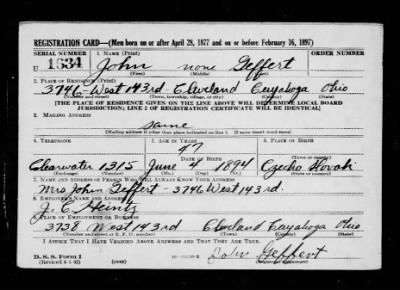 REGISTRATION CARD—(Men born on or after April 28, 1877 and on or before February 16, 1897)
SERIAL NUMBER 1. NAME (Print) ORDER NUMBER
U 1634 John none Geffert
(First) (Middle) (Last)
2. PLACE OF RESIDENCE (Print)
3746-West 143rd- Cleveland Cuyahoga Ohio
(Number and street) (Town, township, village, or city) (County) (State)
[THE PLACE OF RESIDENCE GIVEN ON THE LINE ABOVE WILL DETERMINE LOCAL BOARD
JURISDICTION; LINE 2 OF REGISTRATION CERTIFICATE WILL BE IDENTICAL]
3. MAILING ADDRESS
same
[Mailing address if other than place indicated on line 2. If same insert word same]
4. TELEPHONE 5. AGE IN YEARS 6. PLACE OF BIRTH
47
DATE OF BIRTH
Clearwater 1315 June 4 1894 Czecho Slovak
7. NAME AND ADDRESS OF PERSON WHO WILL ALWAYS KNOW YOUR ADDRESS
Mrs John Geffert - 3746 West 143rd.
8. EMPLOYER'S NAME AND ADDRESS
J. C. Heintz
9. PLACE OF EMPLOYMENT OR BUSINESS
3738 West 143rd Cleveland Cuyahoga Ohio
I AFFIRM THAT I HAVE VERIFIED ABOVE ANSWERS AND THAT THEY ARE TRUE.
D. S. S. Form 1
(over) John Geffert